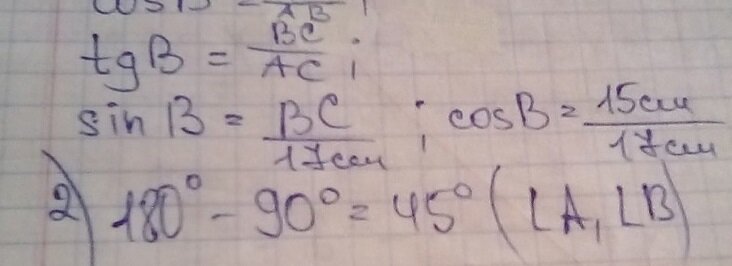 cosB = /AB ;
tgB = BC/AC ;
sin B = BC/17см ; cosB = 15см/17см
2) 180° - 90° = 45° (∟A, ∟B)